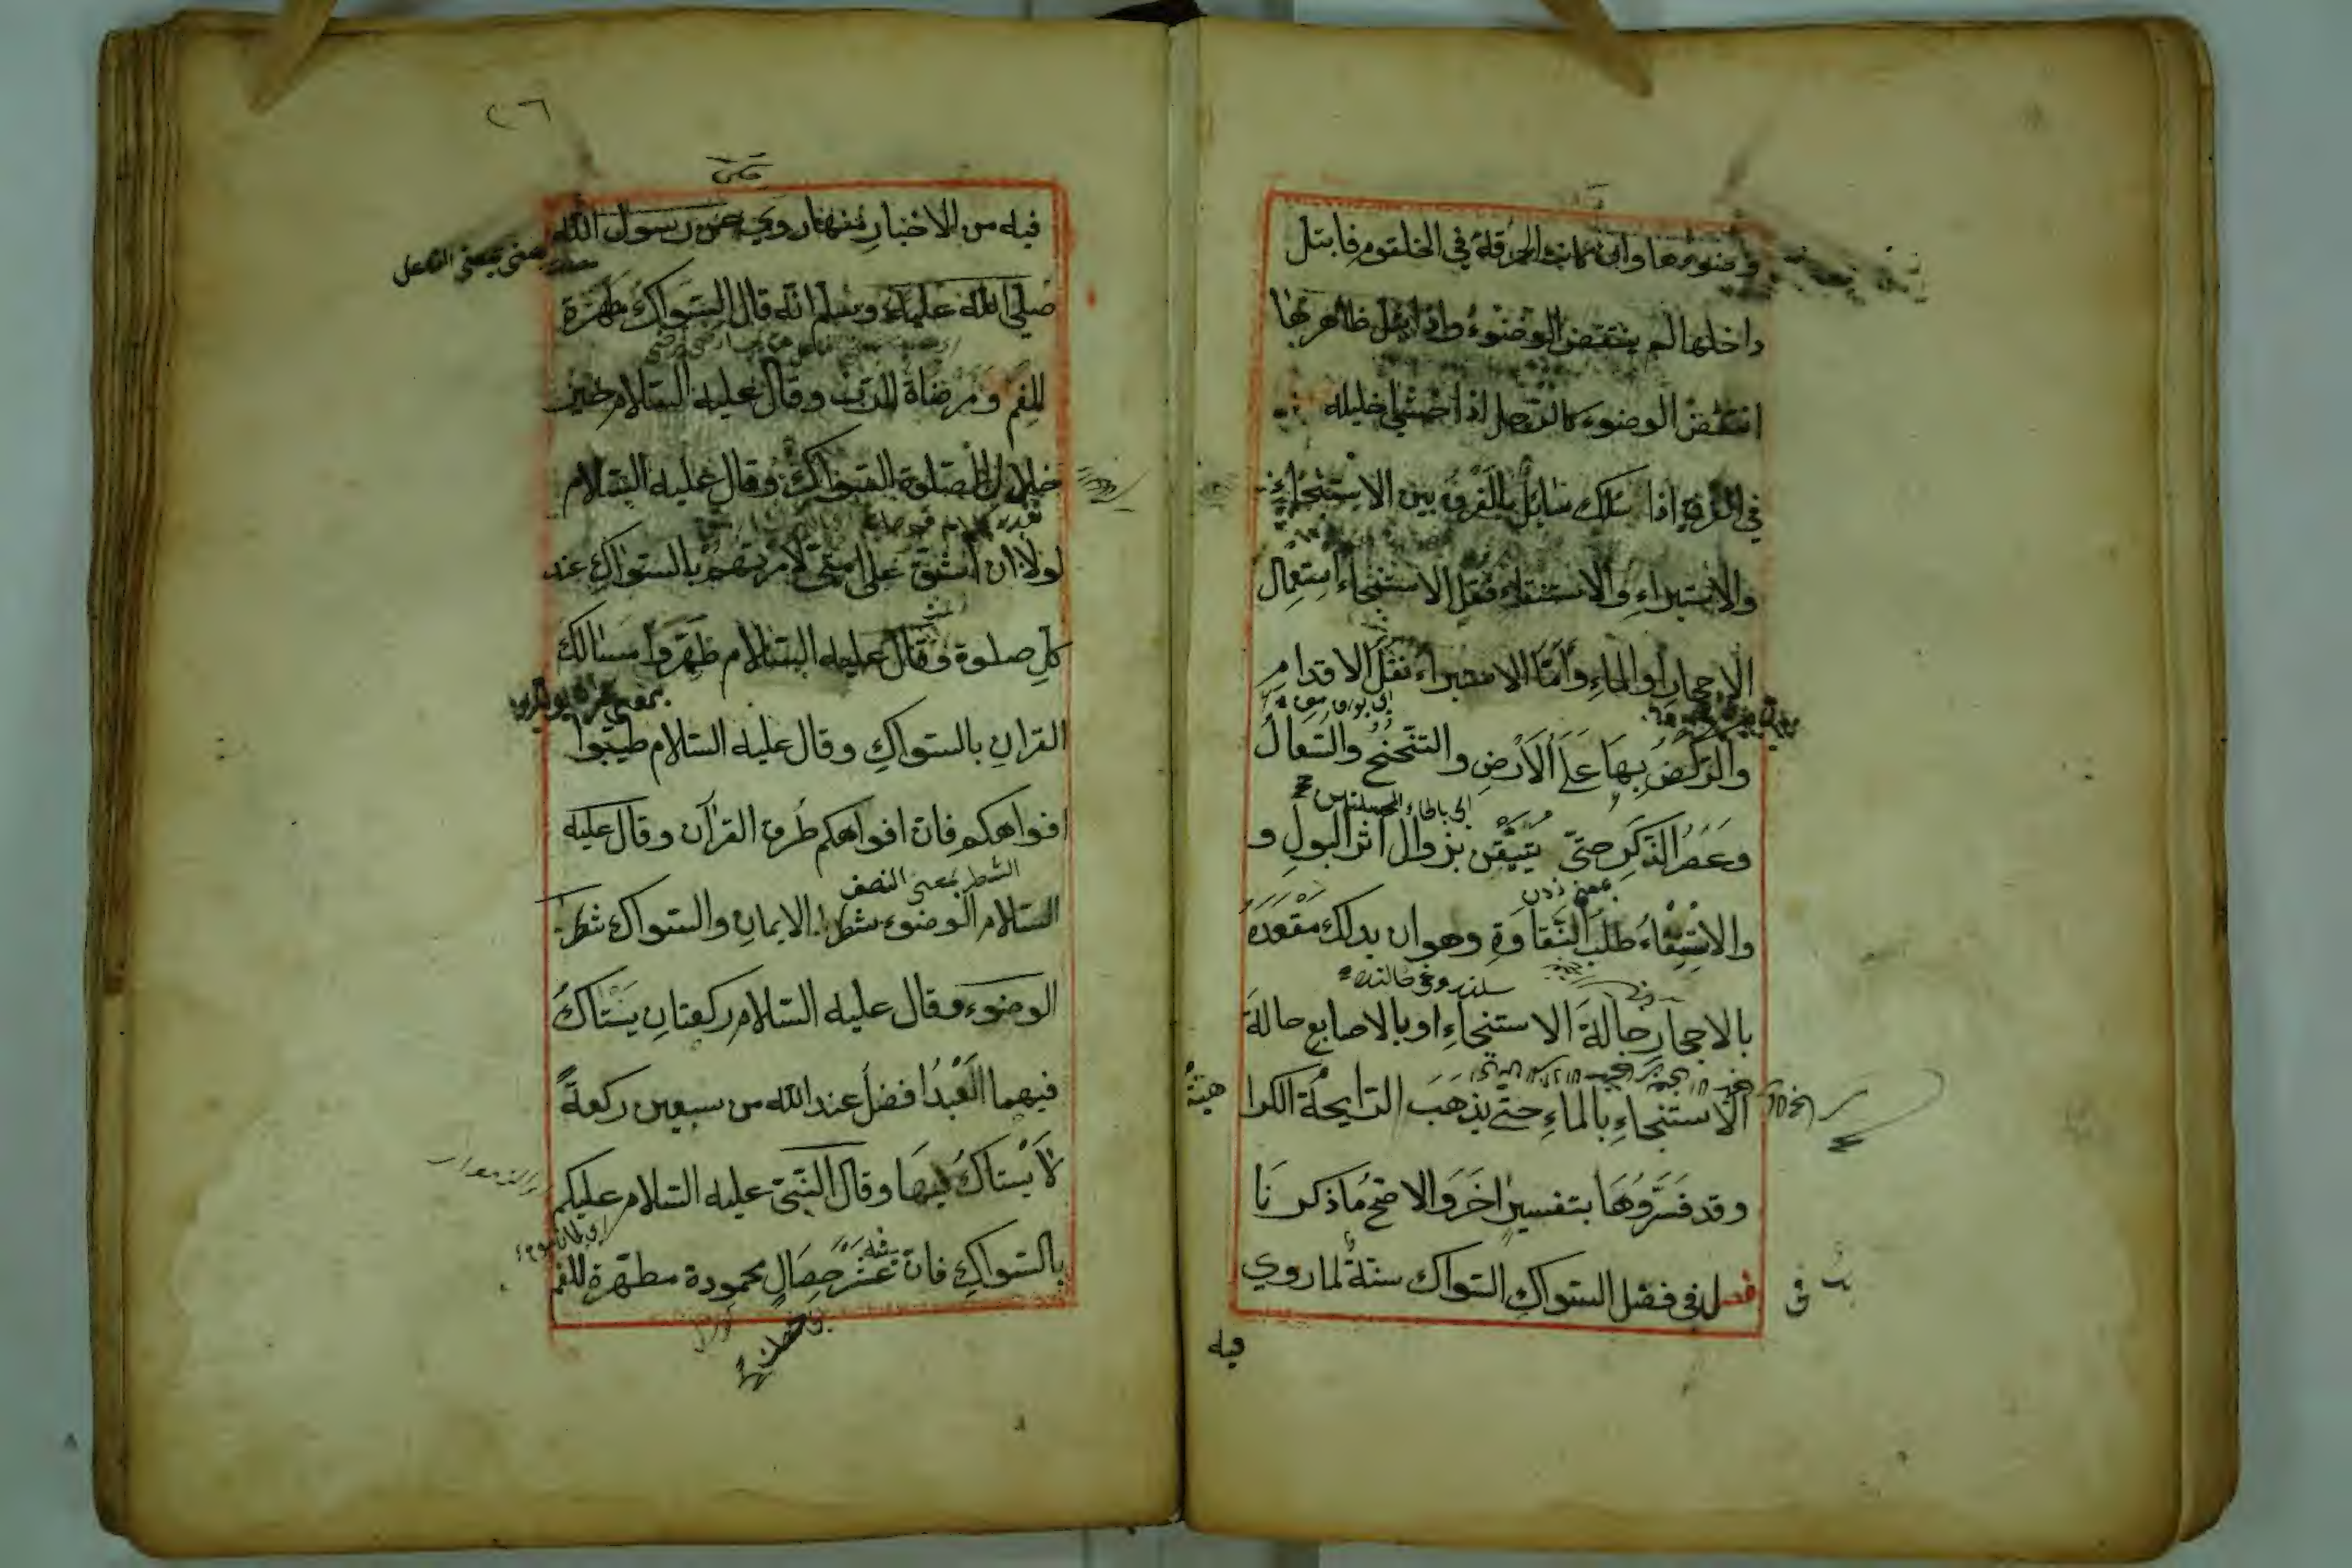 وضوئها وان كانت الخرقة في الحلقوم فابتل
داخلها لم ينتقض الوضوء واذا ابتل ظاهرها
انتقض الوضوء كالرجل اذا حشي احليله
اذا سئلك سائل بالفرق بين الاستنجاء
والاستبراء والاستنقاء فقل الاستنجاء استعمال
الاحجار او الماء وأمّا الاستبراء نقل الاقدام
والرّكض بها على الارض والتنحنح والسّعال
وعصر الذكر حتّى يتيقن بزوال أثر البول و
بمعنى
والاستنقاء طلب النّقاوة وهو ان يدلك مقعده
بالاحجار حالة الاستنجاء او بالاصابع حالة
الاستنجاء بالماء حتى يذهب الرّايحة الكرا
هية
وقد فسّروها بتفسير اخر والاصح ما ذكرنا
فصل في فضل السواك السّواك سنّة لما روي
فيه
٢٦
فيه من الاخبار منها روي عن رسول الله
بمعنى الفاعل
صلى الله عليه وسلم انّه قال السّواك مطهرة
للفم ومرضاة للرّب وقال عليه السّلام خير
خلال الصلوة السواك وقال عليه السّلام
لولا ان اشق على امتي لامرتهم بالسّواك عند
كل صلوة وقال عليه السّلام طهّروا مسالك
القران بالسّواك وقال عليه السّلام طيّبوا
افواهكم فان افواهكم طرق القرآن وقال عليه
الشطر بمعنى النصف
السّلام الوضوء شطر الايمان والسّواك شطر
الوضوء وقال عليه السّلام ركعتان يستاك
فيهما العبد افضل عند الله من سبعين ركعة
لا يستاك فيها وقال النّبيّ عليه السّلام عليكم
بالسّواك فان فيه عشر خصال محمودة مطهرة للفم